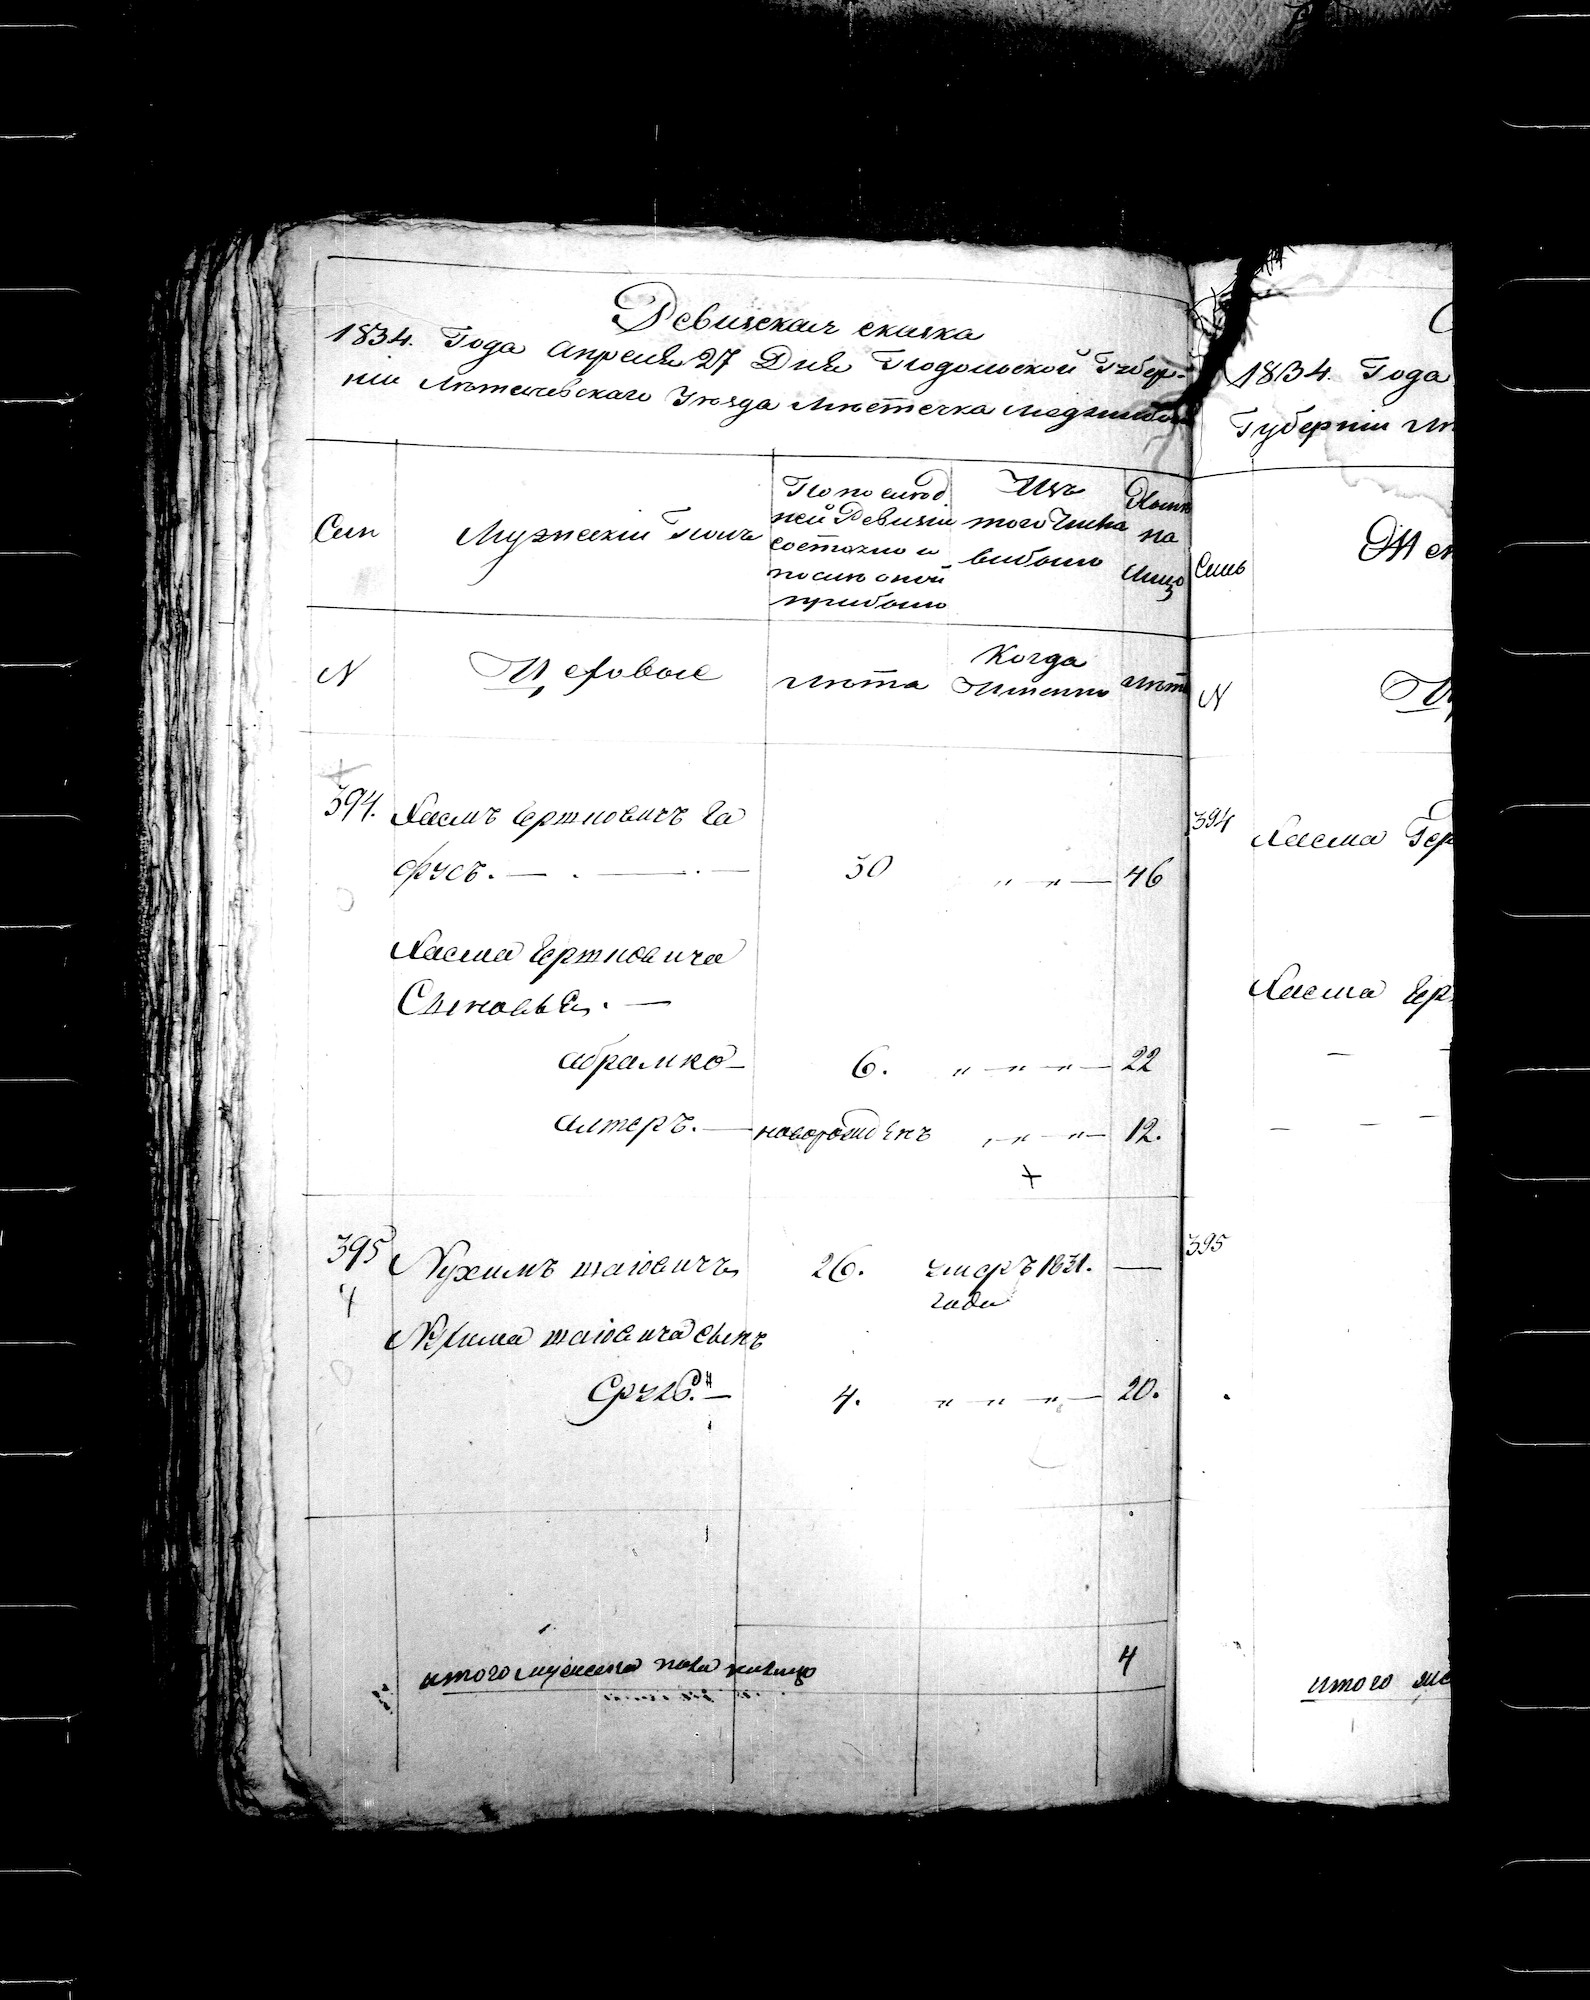 Ревизская сказка
1834. Года Апреля 27 Дня Подольской Губер-
ніи Летичевскаго Уезда Местечка Меджибо
Сем
Мужескій Полъ
По послед
ней Ревизіи
состояло и
после оной
прибыло
Изъ
того Числа
выбыло
Ныне
на
лицо
N
Еврѣи
лѣта
Когда
Имянно
лѣт
394. Хаимъ Гершковичъ Га
фусъ. — . — . — 30 „ „ — 46
Хаима Гершковича
Сыновья. —
Абрамко — 6. „ — „ — „ — 22
Алтеръ. — новорожденъ „ „ — „ — 12.
+
395 Нухимъ шаіовичъ 26. умеръ 1831. —
года
4
Нухима шаіовича сынъ
Сруль. — 4. „ — „ — „ — 20.
итого мужеска пола налицо 4
1834. Года
Губерніи Ле
Семь
Жен
N
394 Хаима Гер
Хаима Гер
395
итого же